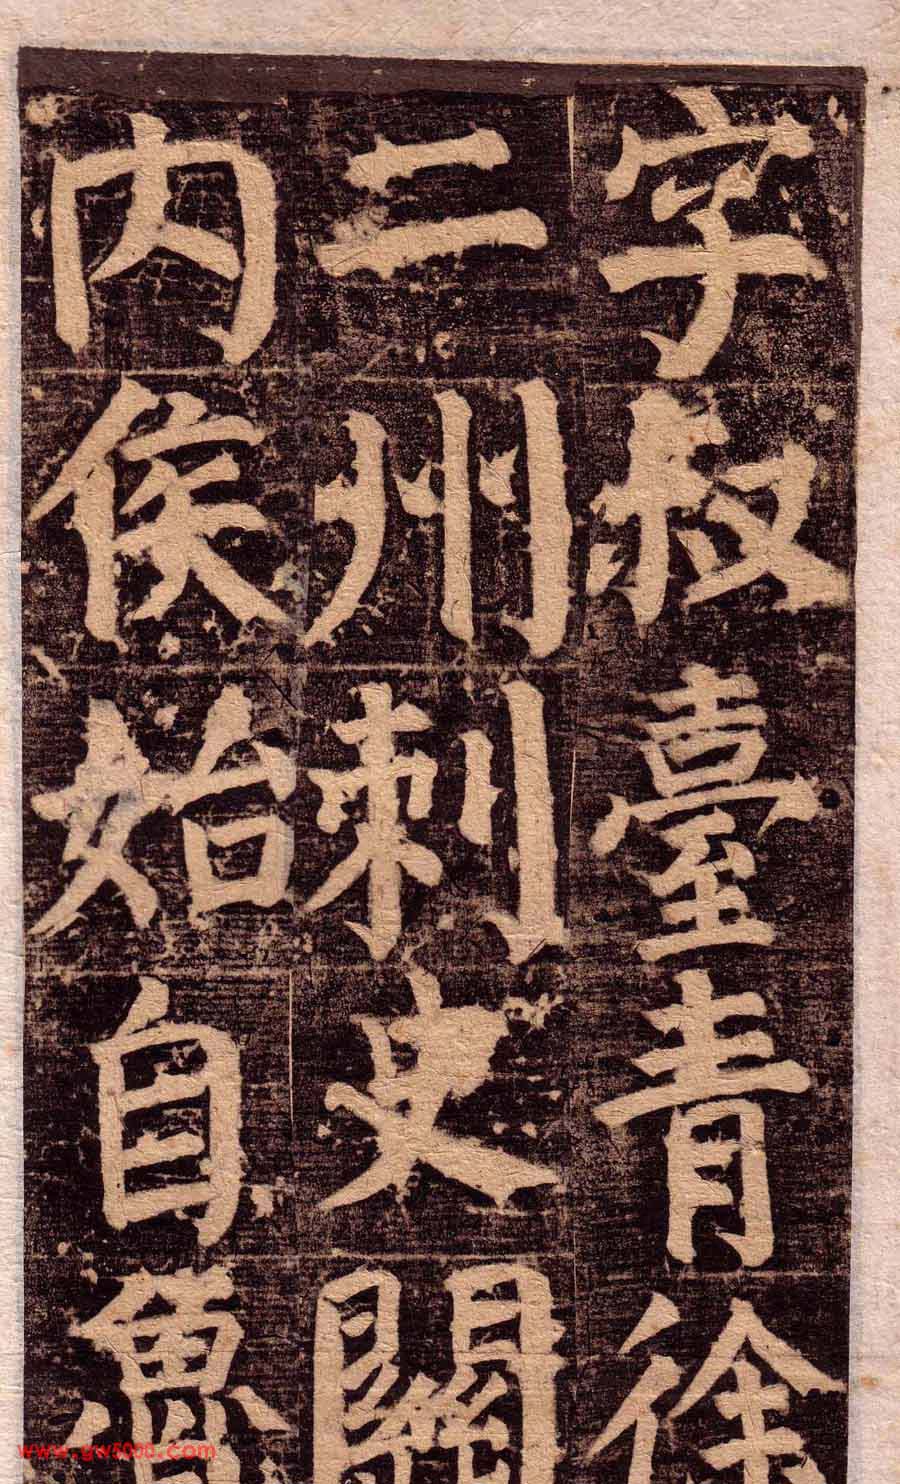 字叔臺青徐
二州刺史關
内侯始自魯
www.gw5000.com